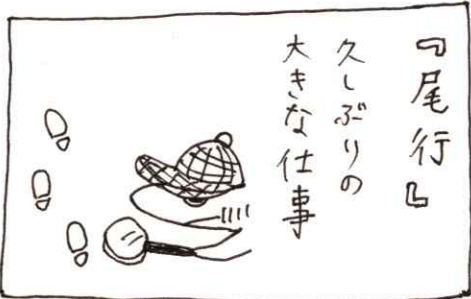 『尾行』
久しぶりの
大きな仕事